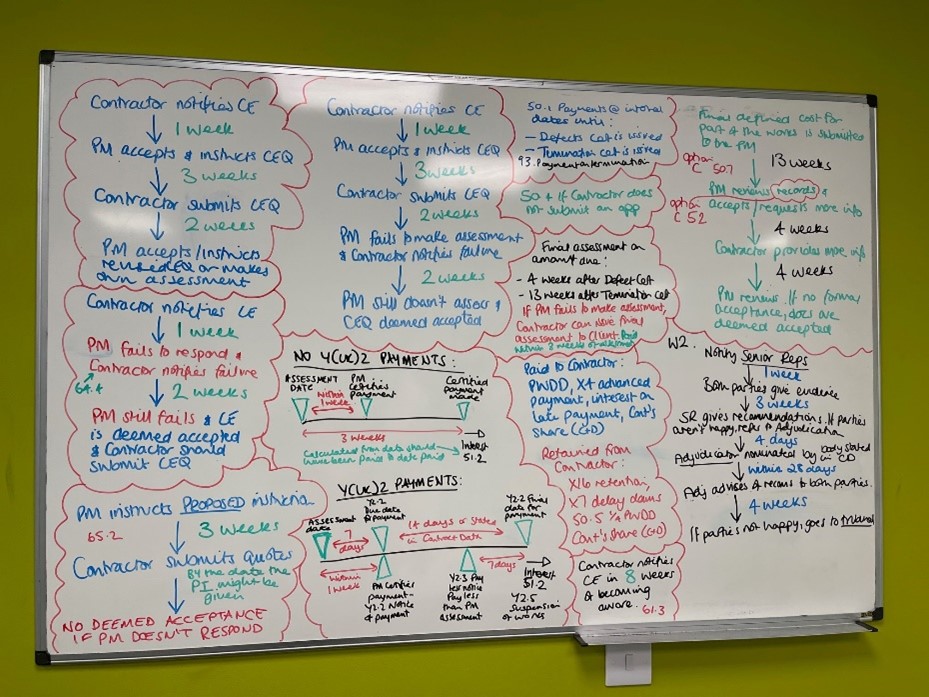 Contractor notifies CE
1 week
PM accepts & instructs CEQ
3 weeks
Contractor submits CEQ
2 weeks
PM accepts/instructs
revised CEQ or makes
own assessment
Contractor notifies CE
1 week
PM fails to respond &
Contractor notifies failure
64.4
2 weeks
PM still fails & CE
is deemed accepted
& Contractor should
submit CEQ
PM instructs PROPOSED instruction
65.2
3 weeks
Contractor submits quotes
By the date the
PI might be
given
NO DEEMED ACCEPTANCE
IF PM DOESN'T RESPOND
Contractor notifies CE
1 week
PM accepts & instructs CEQ
3 weeks
Contractor submits CEQ
2 weeks
PM fails to make assessment
& Contractor notifies failure
2 weeks
PM still doesn't assess &
CEQ deemed accepted
NO Y(UK)2 PAYMENTS:
ASSESSMENT
DATE
within
1 week
PM
certifies
payment
Certified
payment
made
3 weeks
Calculated from date should
have been paid to date paid
Interest
51.2
Y(UK)2 PAYMENTS:
Assessment
date
7
days
Y2.2
Due date
of payment
14 days or stated
in Contract Data
Y2.2 Final
date for
payment
Within
1 week
PM certifies
payment -
Y2.2 Notice
of payment
Y2.3 Pay
less notice
Pay less
than PM
assessment
7 days
Interest
51.2
Y2.5
Suspension
of works
50.1 Payments @ interval
dates until:
- Defects Cert is issued
- Termination cert is issued
93. Payment on termination
50.4 If Contractor does
not submit an app
Final assessment on
amount due:
- 4 weeks after Defect Cert
- 13 weeks after Termination Cert
If PM fails to make assessment,
Contractor can issue final
assessment to Client. Paid
within 3 weeks of
Paid to Contractor:
PWDD, X14 advanced
payment, interest on
late payment, Cont's
share (C&D)
Retained from
Contractor:
X16 retention,
X7 delay dams
50.5 1/4 PWDD
Cont's share (C&D)
Contractor notifies
CE in 8 weeks
of becoming
aware.
61.3
Final defined cost for
part of the works is submitted
to the PM
option
C 50.7
13 weeks
PM reviews records &
accepts/requests more info
option
C 52
4 weeks
Contractor provides more info
4 weeks
PM reviews. If no formal
acceptance, does are
deemed accepted
W2.
Notify Senior Reps
1 week
Both parties give evidence
3 weeks
SR gives recommendations. If parties
aren't happy, refer to Adjudication
4 days
Adjudicator nominated by body stated
in CD
within 28 days
Adj advises of recoms to both parties.
4 weeks
If parties not happy, goes to tribunal